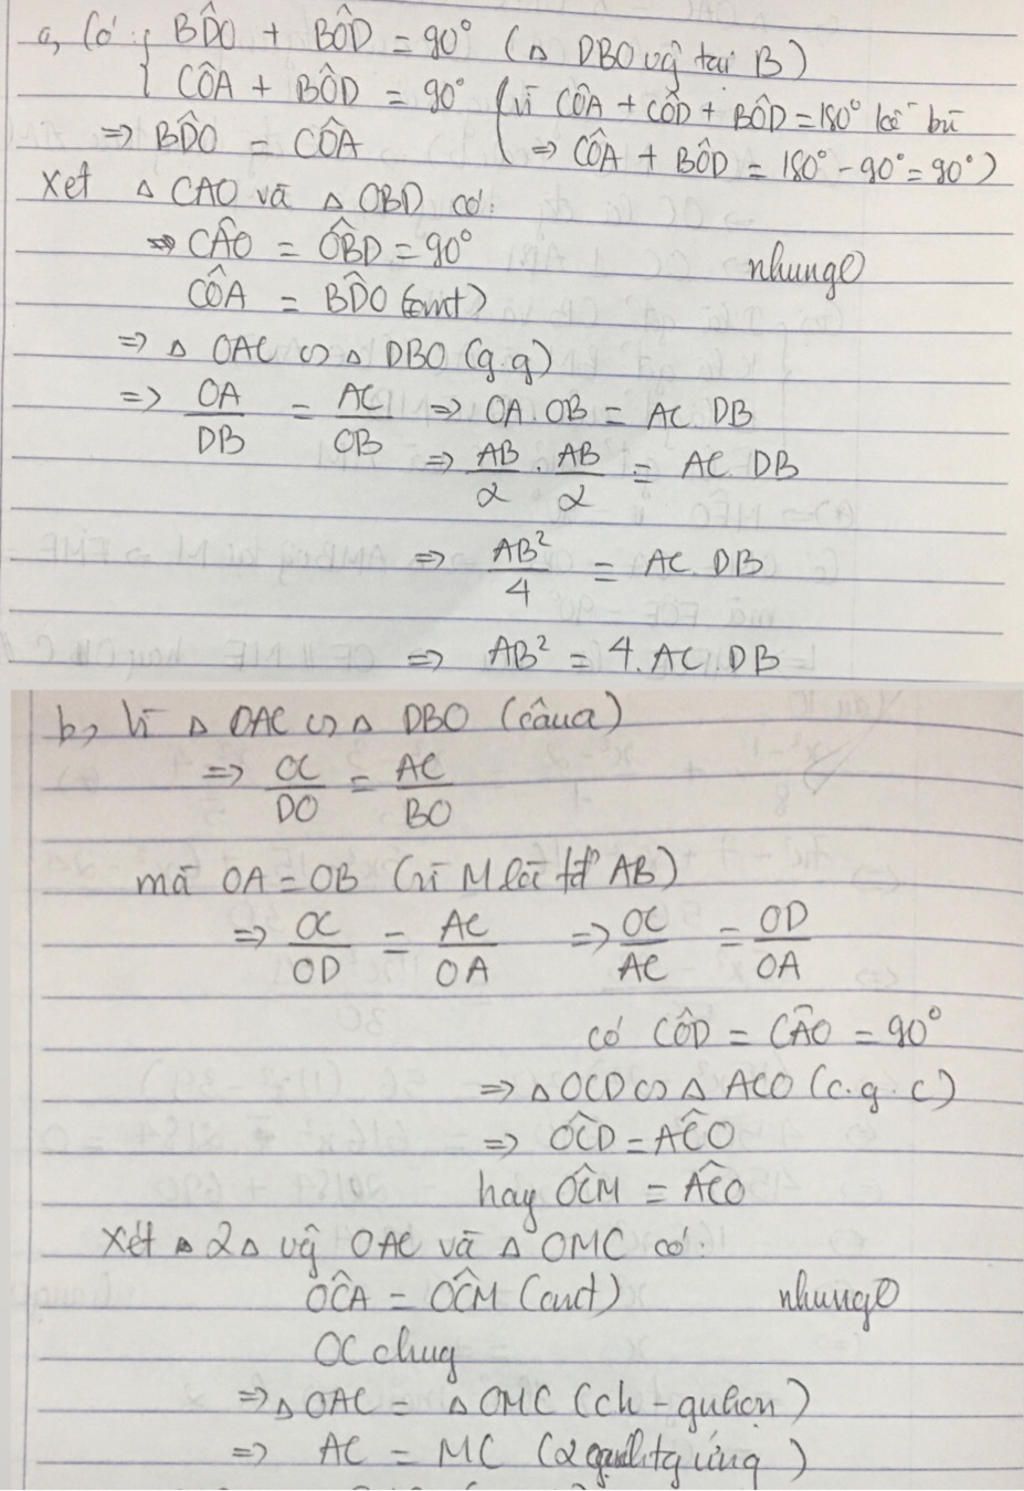 a, Có { BD̂O + BÔD = 90° (△ DBO vg tại B)
CÔA + BÔD = 90° (vì CÔA + CÔD + BÔD = 180° kề bù
=> BD̂O = CÔA => CÔA + BÔD = 180° - 90° = 90°)
Xét △ CAO và △ OBD có:
=> CÂO = OB̂D = 90°
nhungO
CÔA = BD̂O (cmt)
=> △ OAC ∽ △ DBO (g.g)
=> OA/DB = AC/OB => OA.OB = AC.DB
=> AB/2 . AB/2 = AC.DB
=> AB²/4 = AC.DB
=> AB² = 4.AC.DB
b, Vì △ OAC ∽ △ DBO (câu a)
=> OC/DO = AC/BO
mà OA = OB (vì M là tđ AB)
=> OC/OD = AC/OA => OC/AC = OD/OA
có CÔD = CÂO = 90°
=> △ OCD ∽ △ ACO (c.g.c)
=> OĈD = AĈO
hay OĈM = AĈO
Xét 2△ vg OAC và △ OMC có:
OĈA = OĈM (cmt) nhungO
OC chug
=> △ OAC = △ OMC (ch - gnhọn)
=> AC = MC (2 tg ứng)